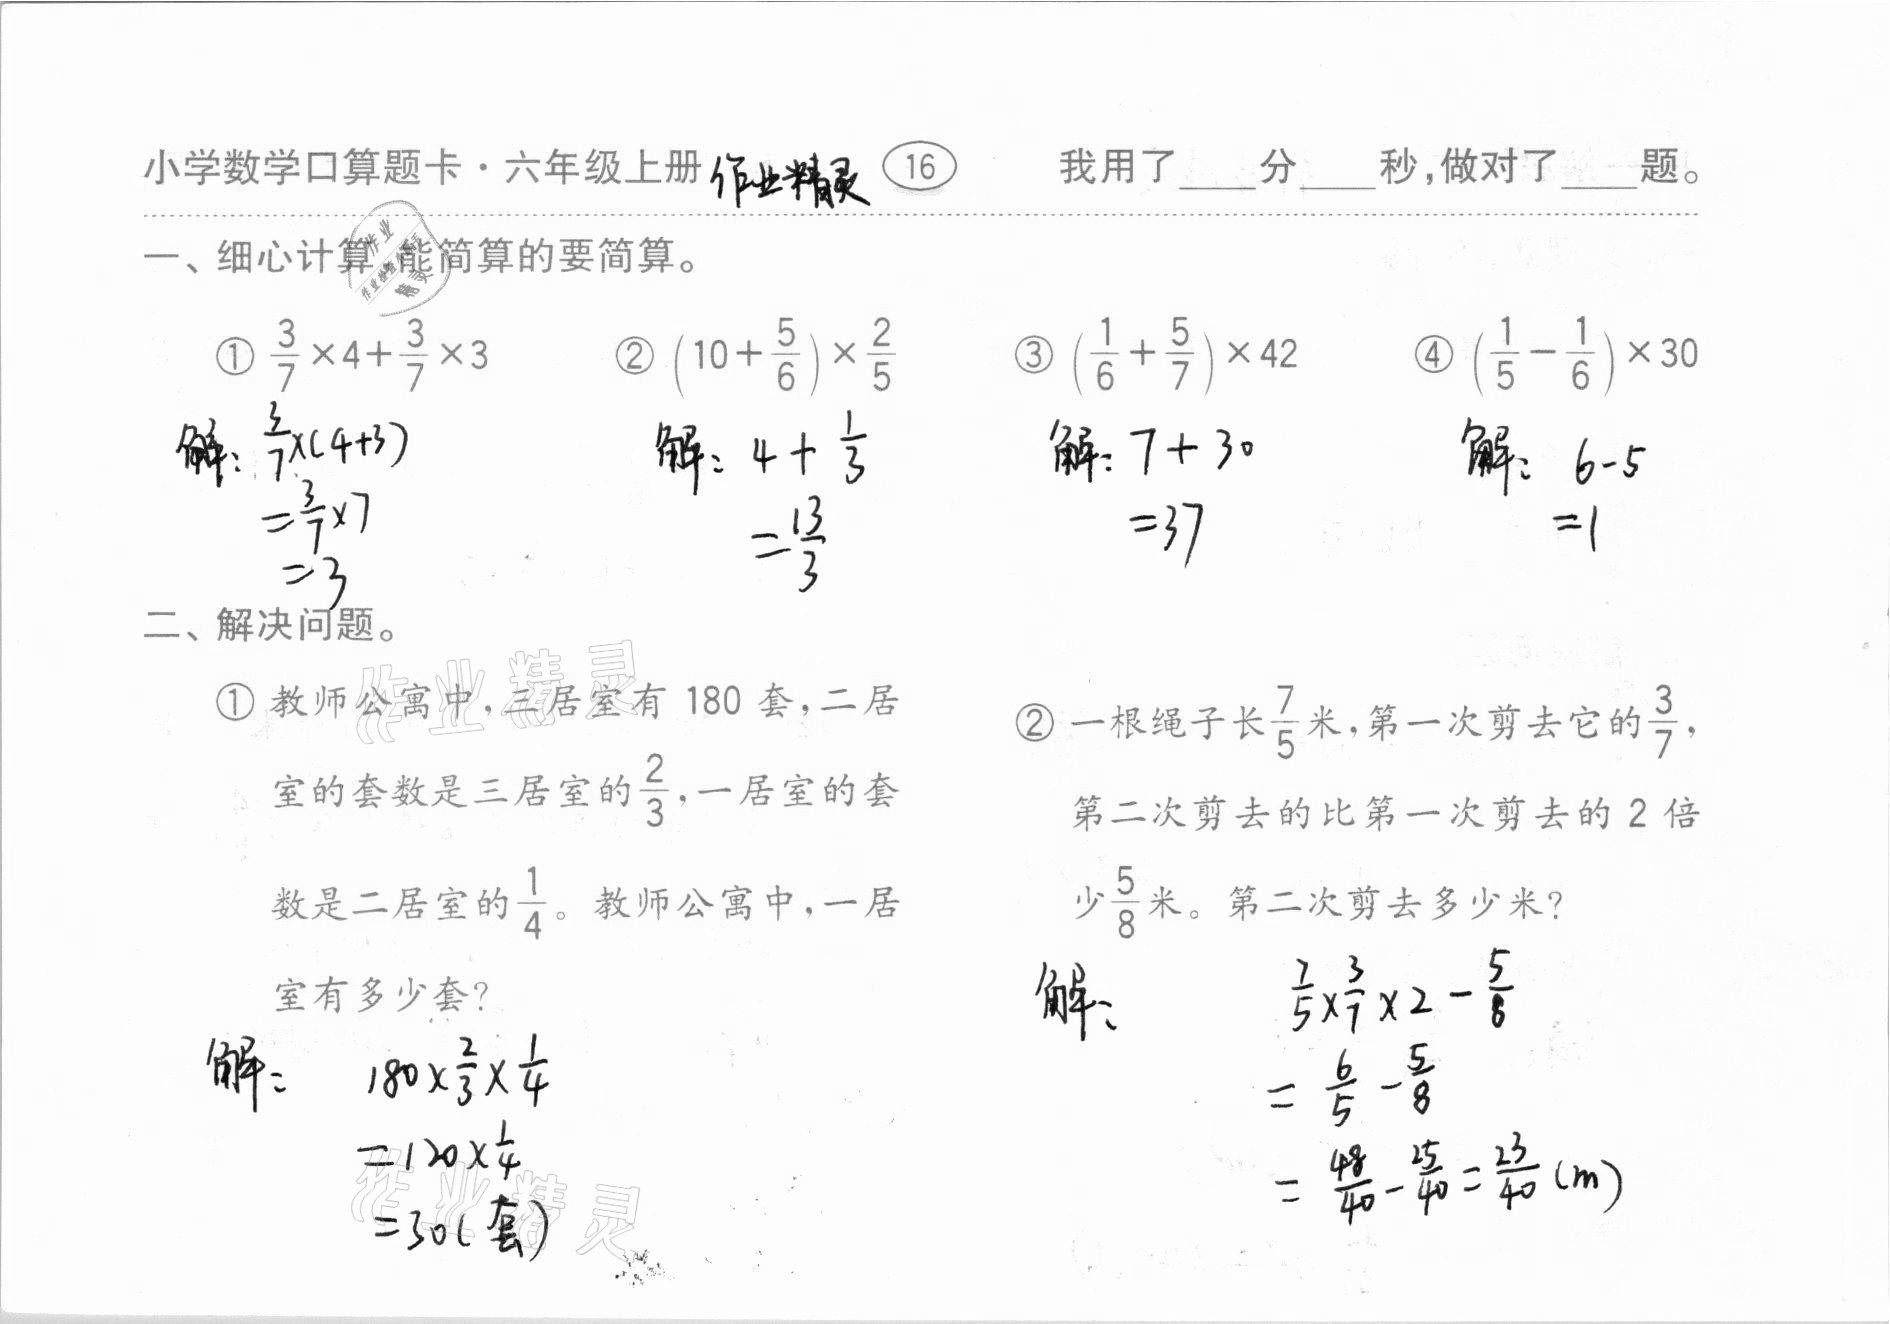 小学数学口算题卡·六年级上册 作业精灵 16 我用了____分____秒,做对了____题。
一、细心计算,能简算的要简算。
① 3/7×4+3/7×3 ② (10+5/6)×2/5 ③ (1/6+5/7)×42 ④ (1/5-1/6)×30
解: 3/7×(4+3) 解: 4+1/3 解: 7+30 解: 6-5
=3/7×7 =13/3 =37 =1
=3
二、解决问题。
① 教师公寓中,三居室有 180 套,二居
室的套数是三居室的2/3,一居室的套
数是二居室的1/4。教师公寓中,一居
室有多少套?
解: 180×2/3×1/4
=120×1/4
=30(套)
② 一根绳子长7/5米,第一次剪去它的3/7,
第二次剪去的比第一次剪去的 2 倍
少5/8米。第二次剪去多少米?
解: 7/5×3/7×2-5/8
=6/5-5/8
=48/40-25/40=23/40(m)
作业精灵
作业精灵
作业
精灵